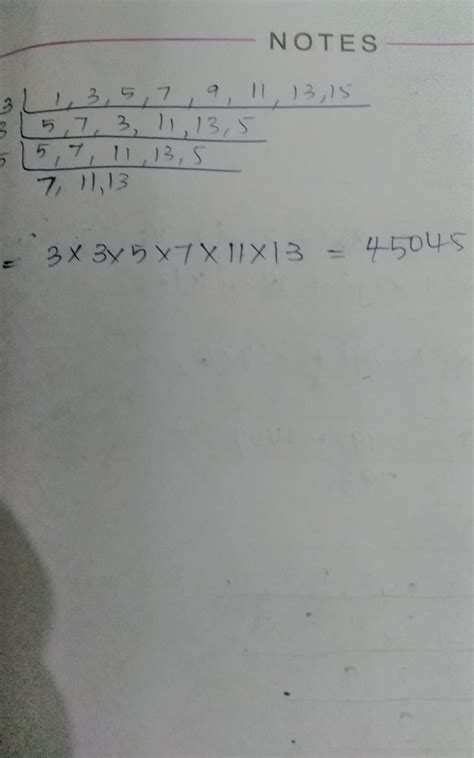 NOTES
3 1, 3, 5, 7, 9, 11, 13, 15
3 5, 7, 3, 11, 13, 5
5 5, 7, 11, 13, 5
7, 11, 13
= 3 × 3 × 5 × 7 × 11 × 13 = 45045